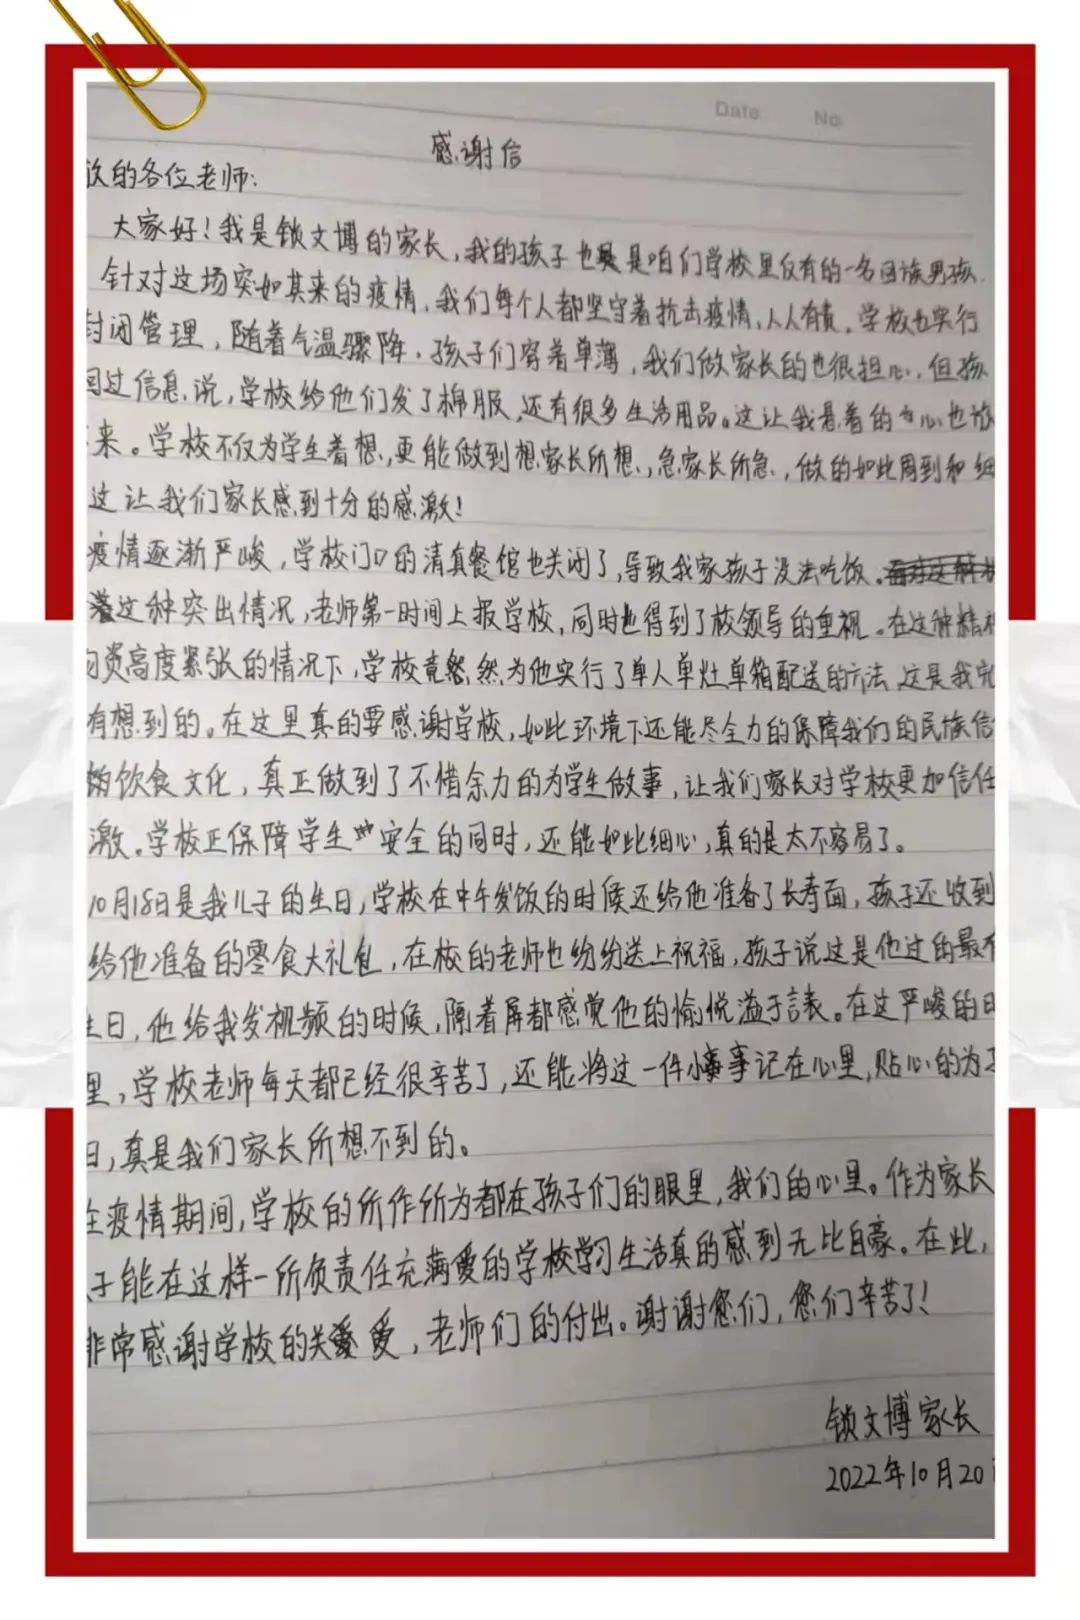 Date No
感谢信
的各位老师:
大家好!我是锁文博的家长,我的孩子也是咱们学校里仅有的一名回族男孩.
针对这场突如其来的疫情,我们每个人都坚守着抗击疫情,人人有责。学校也实行
封闭管理,随着气温骤降,孩子们穿着单薄,我们做家长的也很担心,但孩
回过信息说,学校给他们发了棉服,还有很多生活用品。这让我悬着的心也放
来。学校不仅为学生着想,更能做到想家长所想,急家长所急,做的如此周到和细
这让我们家长感到十分的感激!
疫情逐渐严峻,学校门口的清真餐馆也关闭了,导致我家孩子没法吃饭。
着这种突出情况,老师第一时间上报学校,同时也得到了校领导的重视。在这种精神
资高度紧张的情况下,学校竟然为他实行了单人单灶单箱配送的方法,这是我完
有想到的。在这里真的要感谢学校,如此环境下还能尽全力的保障我们的民族信
饮食文化,真正做到了不惜余力的为学生做事,让我们家长对学校更加信任
激。学校正保障学生安全的同时,还能如此细心,真的是太不容易了。
10月18日是我儿子的生日,学校在中午发饭的时候还给他准备了长寿面,孩子还收到
给他准备的零食大礼包,在校的老师也纷纷送上祝福,孩子说这是他过的最有
生日,他给我发视频的时候,隔着屏都感觉他的愉悦溢于言表。在这严峻的日
里,学校老师每天都已经很辛苦了,还能将这一件小事记在心里,贴心的为孩
日,真是我们家长所想不到的。
在疫情期间,学校的所作所为都在孩子们的眼里,我们的心里。作为家长
子能在这样一所负责任充满爱的学校学习生活真的感到无比自豪。在此,
非常感谢学校的关爱,老师们的付出。谢谢您们,您们辛苦了!
锁文博家长
2022年10月20日